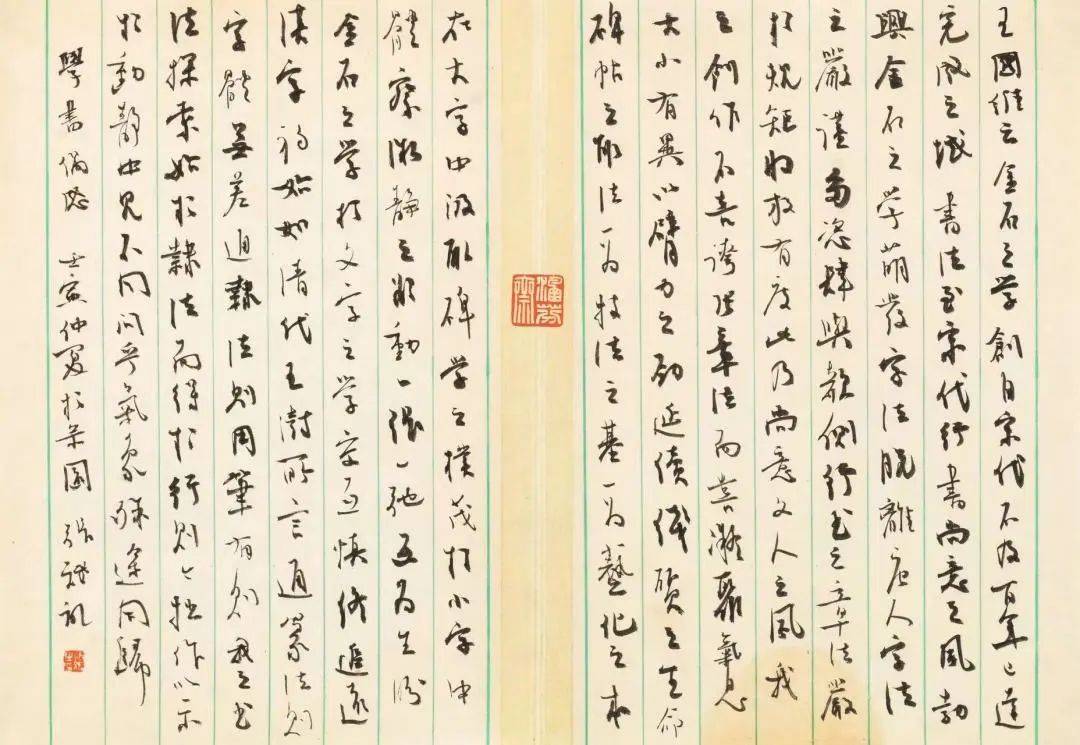 王國維云金石之學創自宋代不及百年已達
完成之域書法至宋代行書尚意之風勃
興金石之學萌發字法脫離唐人字法
之嚴謹多恣肆與欹側行書之章法嚴
於規矩收放有度此乃尚意文人之風我
之創作不喜誇張章法而喜凝聚氣息
大小有異以臂力之勁延續機質之生命
碑帖之取法一為技法之基一為藝化之本
在大字中汲取碑學之樸茂於小字中
體察漸靜之漸動一張一弛互為生衍
金石之學於文字之學字字慎終追遠
漢字初始如清代王澍所言通篆法則
字體無差通隸法則用筆有則我之書
法探索始於隸法而得於行則之拙作以示
於動靜中見不同同乎氣象殊途同歸
學書偶感 壬寅仲夏於京國